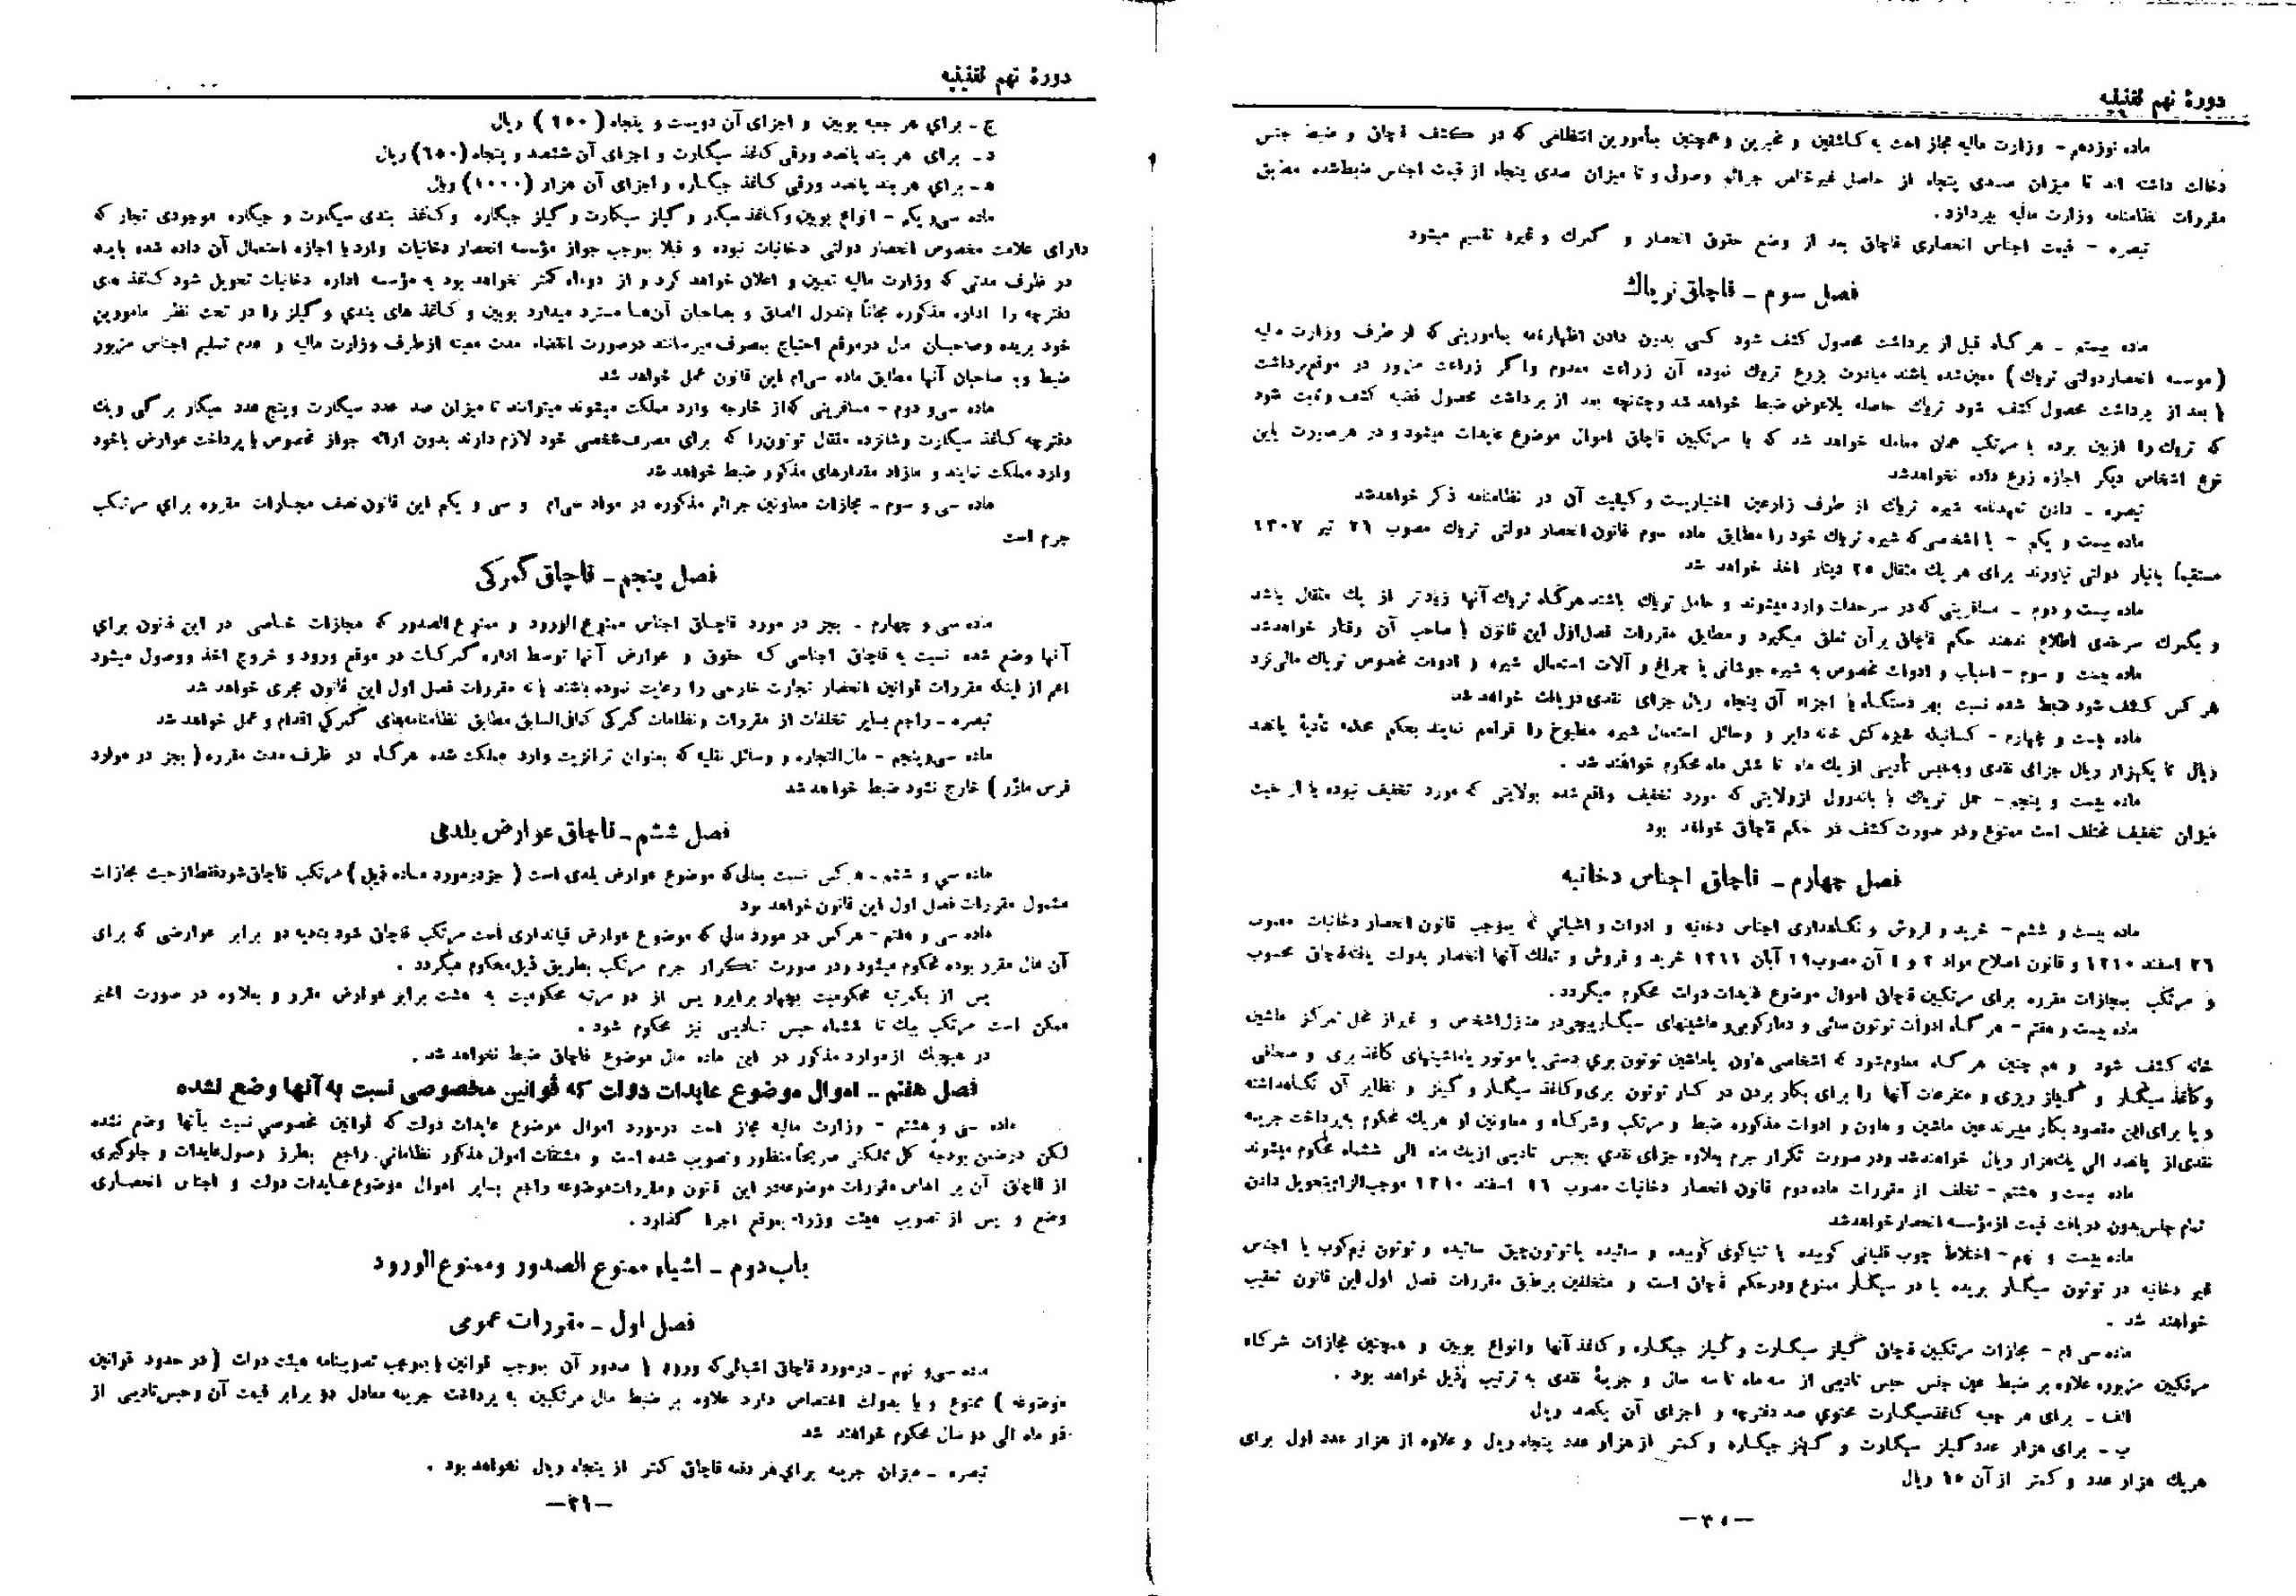 دورهٔ نهم تقنینیه
ماده نوزدهم - وزارت مالیه مجاز است به کاشفین و مخبرین و همچنین بمأمورین انتظامی که در کشف قاچاق و ضبط جنس
دخالت داشته اند تا میزان صدی پنجاه از حاصل غیرخالص جرائم وصولی و تا میزان صدی پنجاه از قیمت اجناس ضبط‌شده مطابق
مقررات نظامنامه وزارت مالیه بپردازد.
تبصره - قیمت اجناس انحصاری قاچاق بعد از وضع حقوق انحصار و گمرك و غیره تقسیم میشود
فصل سوم - قاچاق تریاك
ماده بیستم - هر گاه قبل از برداشت محصول کشف شود کسی بدون دادن اظهارنامه بمامورینی که از طرف وزارت مالیه
(موسسه انحصار دولتی تریاك) معین‌شده باشند مبادرت بزرع تریاك نموده آن زراعت معدوم واگر زراعت مزبور در موقع‌برداشت
یا بعد از برداشت محصول کشف شود تریاك حاصله بلاعوض ضبط خواهد شد وچنانچه بعد از برداشت محصول قضیه کشف وثابت شود
که تریاك را ازبین برده با مرتکب همان معامله خواهد شد که با مرتکبین قاچاق اموال موضوع عایدات میشود و در هرصورت باین
نوع اشخاص دیگر اجازه زرع داده نخواهدشد
تبصره - دادن تعهدنامه شیره تریاك از طرف زارعین اختیاریست و کیفیت آن در نظامنامه ذکر خواهدشد
ماده بیست و یکم - با اشخاصی که شیره تریاك خود را مطابق ماده سوم قانون انحصار دولتی تریاك مصوب ۲۶ تیر ۱۳۰۷
مستقیماً بانبار دولتی نیاورند برای هر یك مثقال ۲۵ دینار اخذ خواهد شد
ماده بیست و دوم - مسافرینی که در سرحدات وارد میشوند و حامل تریاك باشند هرگاه تریاك آنها زیادتر از یك مثقال باشد
و بگمرك سرحدی اطلاع ندهند حکم قاچاق بر آن تعلق میگیرد و مطابق مقررات فصل اول این قانون با صاحب آن رفتار خواهدشد
ماده بیست و سوم - اسباب و ادوات مخصوص به شیره جوشانی یا چراغ و آلات استعمال شیره و ادوات مخصوص تریاك مالی نزد
هر کس کشف شود ضبط شده نسبت بهر دستگاه یا اجزاء آن پنجاه ریال جزای نقدی دریافت خواهد شد
ماده بیست و چهارم - کسانیکه شیره کش خانه دایر و وسائل استعمال شیره مطبوخ را فراهم نمایند بحکم محکمه تأدیهٔ پانصد
ریال تا یکهزار ریال جزای نقدی وبه‌حبس تأدیبی از یك ماه تا شش ماه محکوم خواهند شد .
ماده بیست و پنجم - حمل تریاك با باندرول ازولایتی که مورد تخفیف واقع شده بولایتی که مورد تخفیف نبوده یا از حیث
میزان تخفیف مختلف است ممنوع ودر صورت کشف در حکم قاچاق خواهد بود
فصل چهارم - قاچاق اجناس دخانیه
ماده بیست و ششم - خرید و فروش و نگاهداری اجناس دخانیه و ادوات و اشیائی که بموجب قانون انحصار دخانیات مصوب
۲۶ اسفند ۱۳۱۰ و قانون اصلاح مواد ۲ و ۱ آن مصوب ۱۹ آبان ۱۳۱۱ خرید و فروش و تملك آنها انحصار بدولت یافته‌قاچاق محسوب
و مرتکب بمجازات مقرره برای مرتکبین قاچاق اموال موضوع عایدات دولت محکوم میگردد.
ماده بیست و هفتم - هر گاه ادوات توتون سائی و دمارکوبی‌و ماشینهای سیگارپیچی‌در منزل‌اشخاص و غیراز محل تمرکز ماشین
خانه کشف شود و هم چنین هر گاه معلوم‌شود که اشخاصی هاون یاماشین توتون بری دستی یا موتور یاماشینهای کاغذ بری و صحافی
وکاغذ سیگار و گیلز ریزی و متفرعات آنها را برای بکار بردن در کار توتون بری‌وکاغذ سیگار و گیلز و نظایر آن نگاهداشته
و یا برای این مقصود بکار میبرند عین ماشین و هاون و ادوات مذکوره ضبط و مرتکب وشرکاء و معاونین او هریك محکوم به‌پرداخت جریمه
نقدی‌از پانصد الی یك‌هزار ریال خواهندشد ودر صورت تکرار جرم بعلاوه جزای نقدی بحبس تادیبی ازیك ماه الی ششماه محکوم میشوند
ماده بیست و هشتم - تخلف از مقررات ماده‌دوم قانون انحصار دخانیات مصوب ۲۶ اسفند ۱۳۱۰ موجب‌الزام‌بتحویل دادن
تمام جنس‌بدون دریافت قیمت ازمؤسسه انحصار خواهدشد
ماده بیست و نهم - اختلاط چوب قلیانی کوبیده یا تنباکوی کوبیده و سائیده یاتوتون‌چپق سائیده و توتون نیم‌کوب یا اجناس
غیر دخانیه در توتون سیگار بریده یا در سیگار ممنوع ودرحکم قاچاق است و متخلفین برطبق مقررات فصل اول این قانون تعقیب
خواهند شد .
ماده سی ام - مجازات مرتکبین قاچاق گیلز سیگارت و گیلز جیگاره و کاغذ آنها وانواع بوبین و همچنین مجازات شرکاء
مرتکبین مزبوره علاوه بر ضبط عین جنس حبس تادیبی از سه ماه تا سه سال و جریمهٔ نقدی به ترتیب ذیل خواهد بود .
الف - برای هر جعبه کاغذسیگارت محتوی صد دفترچه و اجزای آن یکصد ریال
ب - برای هزار عدد گیلز سیگارت و گیلز جیگاره و کمتر از هزار عدد پنجاه ریال و علاوه از هزار عدد اول برای
هریك هزار عدد و کمتر از آن ۱۵ ریال
دورهٔ نهم تقنینیه
ج - برای هر جعبه بوبین و اجزای آن دویست و پنجاه ( ۲۵۰ ) ریال
د - برای هر بند پانصد ورقی کاغذ سیگارت و اجزای آن ششصد و پنجاه (۶۵۰) ریال
ه - برای هر بند پانصد ورقی کاغذ جیگاره و اجزای آن هزار (۱۰۰۰) ریال
ماده سی‌و یکم - انواع بوبین وکاغذ سیگار و گیلز سیگارت و گیلز جیگاره وکاغذ بندی سیگارت و جیگاره موجودی تجار که
دارای علامت مخصوص انحصار دولتی دخانیات نبوده و قبلا بموجب جواز مؤسسه انحصار دخانیات وارد یا اجازه استعمال آن داده شده باید
در ظرف مدتی که وزارت مالیه تعیین و اعلان خواهد کرد و از دوماه کمتر نخواهد بود به مؤسسه اداره دخانیات تحویل شود کاغذ های
دفترچه را اداره مذکوره مجاناً باندرل الصاق و بصاحبان آن‌ها مسترد میدارد بوبین و کاغذ های بندی و گیلز را در تحت نظر مامورین
خود بریده وصاحبان مال درموقع احتیاج بمصرف میرسانند درصورت انقضاء مدت معینه ازطرف وزارت مالیه و عدم تسلیم اجناس مزبور
ضبط وبا صاحبان آنها مطابق ماده سی‌ام این قانون عمل خواهد شد
ماده سی‌و دوم - مسافرینی که‌از خارجه وارد مملکت میشوند میتوانند تا میزان صد عدد سیگارت وپنج عدد سیگار برگی ویك
دفترچه کاغذ سیگارت وشانزده مثقال توتون‌را که برای مصرف شخصی خود لازم دارند بدون ارائه جواز مخصوص با پرداخت عوارض باخود
وارد مملکت نمایند و مازاد مقدارهای مذکور ضبط خواهد شد
ماده سی و سوم - مجازات معاونین جرائم مذکوره در مواد سی‌ام و سی و یکم این قانون نصف مجازات مقرره برای مرتکب
جرم است
فصل پنجم - قاچاق گمرکی
ماده سی و چهارم - بجز در مورد قاچاق اجناس ممنوع الورود و ممنوع الصدور که مجازات خاصی در این قانون برای
آنها وضع شده نسبت به قاچاق اجناسی که حقوق و عوارض آنها توسط اداره گمرکات در موقع ورود و خروج اخذ ووصول میشود
اعم از اینکه مقررات قوانین انحصار تجارت خارجی را رعایت نموده باشند یا نه مقررات فصل اول این قانون مجری خواهد شد
تبصره - راجع بسایر تخلفات از مقررات ونظامات گمرکی کمافی‌السابق مطابق نظامنامه‌های گمرکی اقدام و عمل خواهد شد
ماده سی‌وپنجم - مال‌التجاره و وسائل نقلیه که بعنوان ترانزیت وارد مملکت شده هرگاه در ظرف مدت مقرره ( بجز در موارد
فرس ماژر ) خارج نشود ضبط خواهد شد
فصل ششم - قاچاق عوارض بلدی
ماده سی و ششم - هرکس نسبت بمالی‌که موضوع عوارض بلدی است ( جزدرمورد ماده ذیل ) مرتکب قاچاق‌شودفقط‌ازحیث مجازات
مشمول مقررات فصل اول این قانون خواهد بود
ماده سی و هفتم - هرکس در مورد مالی که موضوع عوارض قپانداری است مرتکب قاچاق شود بتادیه دو برابر عوارضی که برای
آن مال مقرر بوده محکوم میشود ودر صورت تکرار جرم مرتکب بطریق ذیل‌محکوم میگردد .
پس از یکمرتبه محکومیت بچهار برابرو پس از دو مرتبه محکومیت به هشت برابر عوارض مقرر و بعلاوه در صورت اخیر
ممکن است مرتکب بیك تا ششماه حبس تادیبی نیز محکوم شود .
در هیچیك ازموارد مذکور در این ماده مال موضوع قاچاق ضبط نخواهد شد .
فصل هفتم - اموال موضوع عایدات دولت که قوانین مخصوصی نسبت به آنها وضع نشده
ماده سی و هشتم - وزارت مالیه مجاز است درمورد اموال موضوع عایدات دولت که قوانین مخصوصی نسبت بآنها وضع نشده
لکن درضمن بودجهٔ کل مملکتی صریحاً منظور وتصویب شده است و مشتقات اموال مذکور نظاماتی راجع بطرز وصول‌عایدات و جلوگیری
از قاچاق آن بر اساس مقررات موضوعه‌در این قانون ومقررات‌موضوعه راجع بسایر اموال موضوع‌عایدات دولت و اجناس انحصاری
وضع و پس از تصویب هیئت وزراء بموقع اجرا گذارد .
باب دوم - اشیاء ممنوع الصدور وممنوع الورود
فصل اول - مقررات عمومی
ماده سی‌و نهم - درمورد قاچاق اشیائی‌که ورود یا صدور آن بموجب قوانین یا بموجب تصویبنامه هیئت دولت ( در حدود قوانین
موضوعه ) ممنوع و یا بدولت اختصاص دارد علاوه بر ضبط مال مرتکبین به پرداخت جریمه معادل دو برابر قیمت آن وحبس‌تادیبی از
دو ماه الی دو سال محکوم خواهند شد
تبصره - میزان جریمه برای‌هر دفعه قاچاق کمتر از پنجاه ریال نخواهد بود .